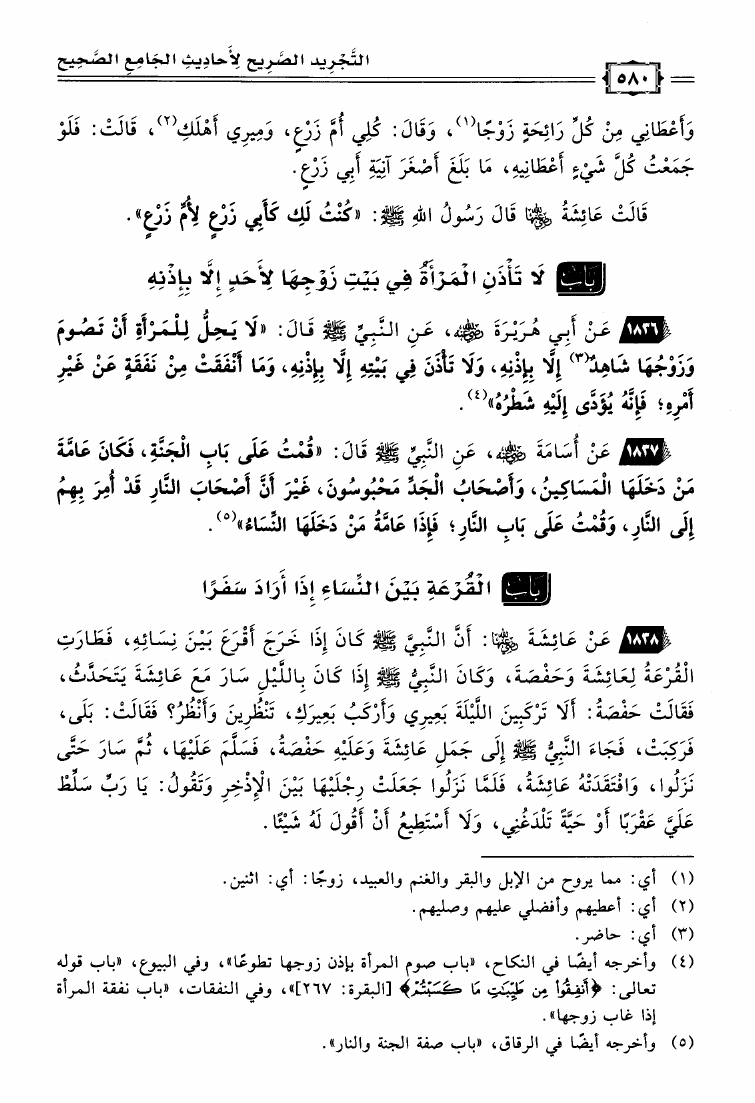 التَّجْرِيد الصَّرِيح لِأَحادِيثِ الجَامِعِ الصَّحِيح
٥٨٠
وَأَعْطَانِي مِنْ كُلِّ رَائِحَةٍ زَوْجًا(١)، وَقَالَ: كُلِي أُمَّ زَرْعٍ، وَمِيرِي أَهْلَكِ(٢)، قَالَتْ: فَلَوْ
جَمَعْتُ كُلَّ شَيْءٍ أَعْطَانِيهِ، مَا بَلَغَ أَصْغَرَ آنِيَةِ أَبِي زَرْعٍ.
قَالَتْ عَائِشَةُ ﵂ قَالَ رَسُولُ اللهِ ﷺ: «كُنْتُ لَكِ كَأَبِي زَرْعٍ لِأُمِّ زَرْعٍ».
بَابٌ لَا تَأْذَنِ الْمَرْأَةُ فِي بَيْتِ زَوْجِهَا لِأَحَدٍ إِلَّا بِإِذْنِهِ
١٨٣٦ عَنْ أَبِي هُرَيْرَةَ ﵁، عَنِ النَّبِيِّ ﷺ قَالَ: «لَا يَحِلُّ لِلْمَرْأَةِ أَنْ تَصُومَ
وَزَوْجُهَا شَاهِدٌ(٣) إِلَّا بِإِذْنِهِ، وَلَا تَأْذَنَ فِي بَيْتِهِ إِلَّا بِإِذْنِهِ، وَمَا أَنْفَقَتْ مِنْ نَفَقَةٍ عَنْ غَيْرِ
أَمْرِهِ؛ فَإِنَّهُ يُؤَدَّى إِلَيْهِ شَطْرُهُ»(٤).
١٨٣٧ عَنْ أُسَامَةَ ﵁، عَنِ النَّبِيِّ ﷺ قَالَ: «قُمْتُ عَلَى بَابِ الْجَنَّةِ، فَكَانَ عَامَّةَ
مَنْ دَخَلَهَا الْمَسَاكِينُ، وَأَصْحَابُ الْجَدِّ مَحْبُوسُونَ، غَيْرَ أَنَّ أَصْحَابَ النَّارِ قَدْ أُمِرَ بِهِمْ
إِلَى النَّارِ، وَقُمْتُ عَلَى بَابِ النَّارِ؛ فَإِذَا عَامَّةُ مَنْ دَخَلَهَا النِّسَاءُ»(٥).
بَابُ الْقُرْعَةِ بَيْنَ النِّسَاءِ إِذَا أَرَادَ سَفَرًا
١٨٣٨ عَنْ عَائِشَةَ ﵂: أَنَّ النَّبِيَّ ﷺ كَانَ إِذَا خَرَجَ أَقْرَعَ بَيْنَ نِسَائِهِ، فَطَارَتِ
الْقُرْعَةُ لِعَائِشَةَ وَحَفْصَةَ، وَكَانَ النَّبِيُّ ﷺ إِذَا كَانَ بِاللَّيْلِ سَارَ مَعَ عَائِشَةَ يَتَحَدَّثُ،
فَقَالَتْ حَفْصَةُ: أَلَا تَرْكَبِينَ اللَّيْلَةَ بَعِيرِي وَأَرْكَبُ بَعِيرَكِ، تَنْظُرِينَ وَأَنْظُرُ؟ فَقَالَتْ: بَلَى،
فَرَكِبَتْ، فَجَاءَ النَّبِيُّ ﷺ إِلَى جَمَلِ عَائِشَةَ وَعَلَيْهِ حَفْصَةُ، فَسَلَّمَ عَلَيْهَا، ثُمَّ سَارَ حَتَّى
نَزَلُوا، وَافْتَقَدَتْهُ عَائِشَةُ، فَلَمَّا نَزَلُوا جَعَلَتْ رِجْلَيْهَا بَيْنَ الْإِذْخِرِ وَتَقُولُ: يَا رَبِّ سَلِّطْ
عَلَيَّ عَقْرَبًا أَوْ حَيَّةً تَلْدَغُنِي، وَلَا أَسْتَطِيعُ أَنْ أَقُولَ لَهُ شَيْئًا.
(١) أي: مما يروح من الإبل والبقر والغنم والعبيد، زوجًا: أي: اثنين.
(٢) أي: أعطيهم وأفضلي عليهم وصليهم.
(٣) أي: حاضر.
(٤) وأخرجه أيضًا في النكاح، «باب صوم المرأة بإذن زوجها تطوعًا»، وفي البيوع، «باب قوله
تعالى: ﴿أَنفِقُواْ مِن طَيِّبَٰتِ مَا كَسَبْتُمْ﴾ [البقرة: ٢٦٧]»، وفي النفقات، «باب نفقة المرأة
إذا غاب زوجها».
(٥) وأخرجه أيضًا في الرقاق، «باب صفة الجنة والنار».